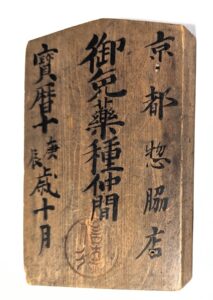 京都惣脇店
御免藥種仲間
寶暦十庚辰歳十月